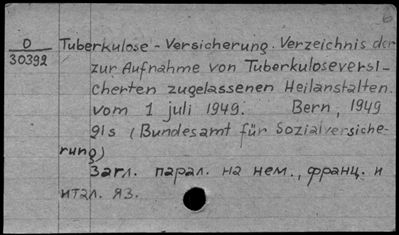 6
O
30392
Tuberkulose - Versicherung. Verzeichnis der
zur Aufnahme von Tuberkuloseversi-
cherten zugelassenen Heilanstalten.
vom 1 juli 1949. Bern, 1949
91s (Bundesamt für Sozialversiche-
rung)
Загл. парал. на нем., франц. и
итал. яз.